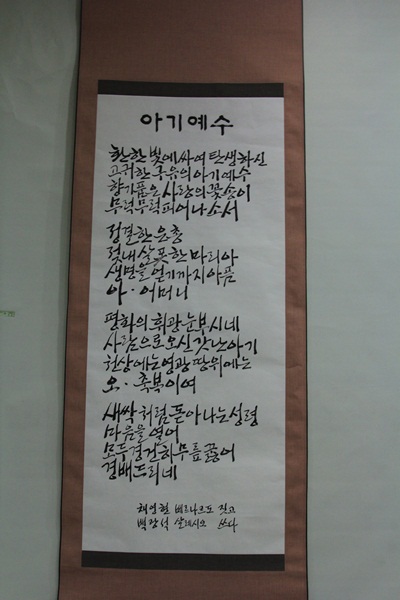 아기예수
환한 빛에 싸여 탄생하신
고귀한 구유의 아기예수
향기품은 사랑의 꽃송이
무럭무럭 피어나소서
정결한 은총
젖내 살풋한 마리아
생명을 얻기까지 아픔
아·어머니
평화의 휘광 눈부시네
사람으로 오신 갓난아기
천상에는 영광 땅위에는
오·축복이여
새싹처럼 돋아나는 성령
마음을 열어
모두 경건히 무릎 꿇어
경배드리네
베르나르도 짓고
백장석 살레시오 쓰다